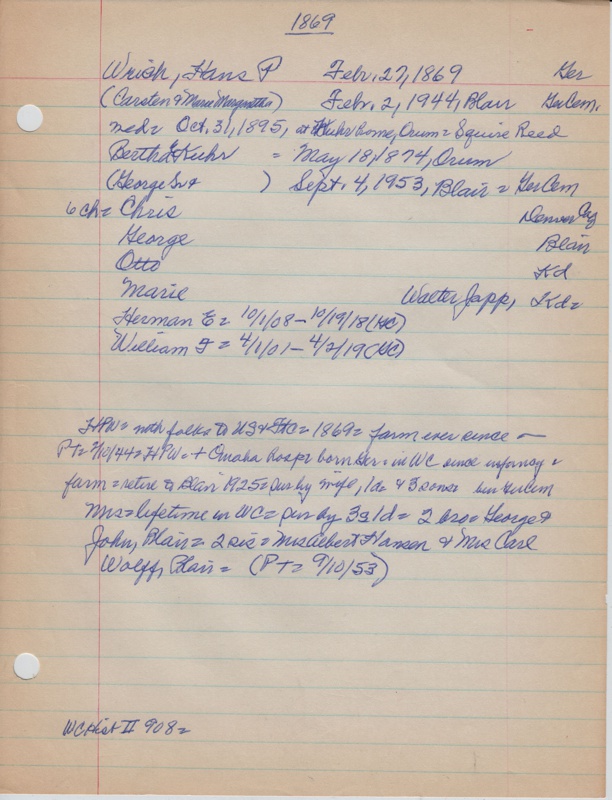 1869
Wrich, Hans P Feb. 27, 1869 Ger
(Carsten & Marie Margretha) Feb. 2, 1944, Blair GerCem.
med= Oct. 31, 1895, at Kuhr home, Orum = Squire Reed
Bertha Kuhr = May 18, 1874, Orum
(George Sr & ) Sept. 4, 1953, Blair = GerCem
6 ch= Chris Denver
George Blair
Otto Kd
Marie Walter Japp, Kd=
Herman E= 10/1/08 - 10/19/18 (HC)
William F = 4/1/01 - 4/2/19 (HC)
HPW= with folks to US & = 1869 = farm ever since -
PT= 2/10/44 = HPW = + Omaha hosp = born Ger = in WC since infancy =
farm = retire to Blair 1925 = sur by wife, 1d= & 3 sons= bur GerCem
Mrs= lifetime in WC = sur by 3s 1d = 2 bro= George &
John, Blair = 2 sis = Mrs Albert Hansen & Mrs Carl
Wolff, Blair = (PT = 9/10/53)
WC Hist II 908=